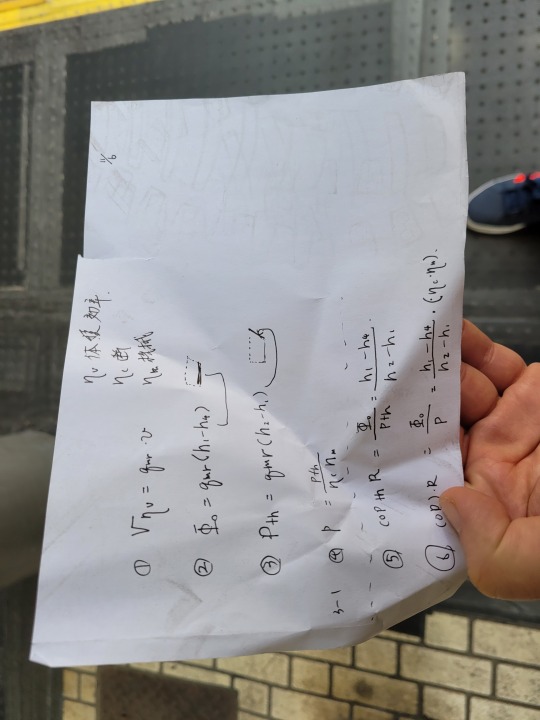 11/6
ηv 体積効率.
ηc 断
ηm 機械
① Vηv = qmr・v
② Φo = qmr (h1-h4)
③ Pth = qmr (h2-h1)
3-1 ④ P = Pth / ηc ηm
⑤ COP th R = Φo / Pth = h1-h4 / h2-h1
⑥ (COP)・R = Φo / P = h1-h4 / h2-h1 ・(ηc・ηm).